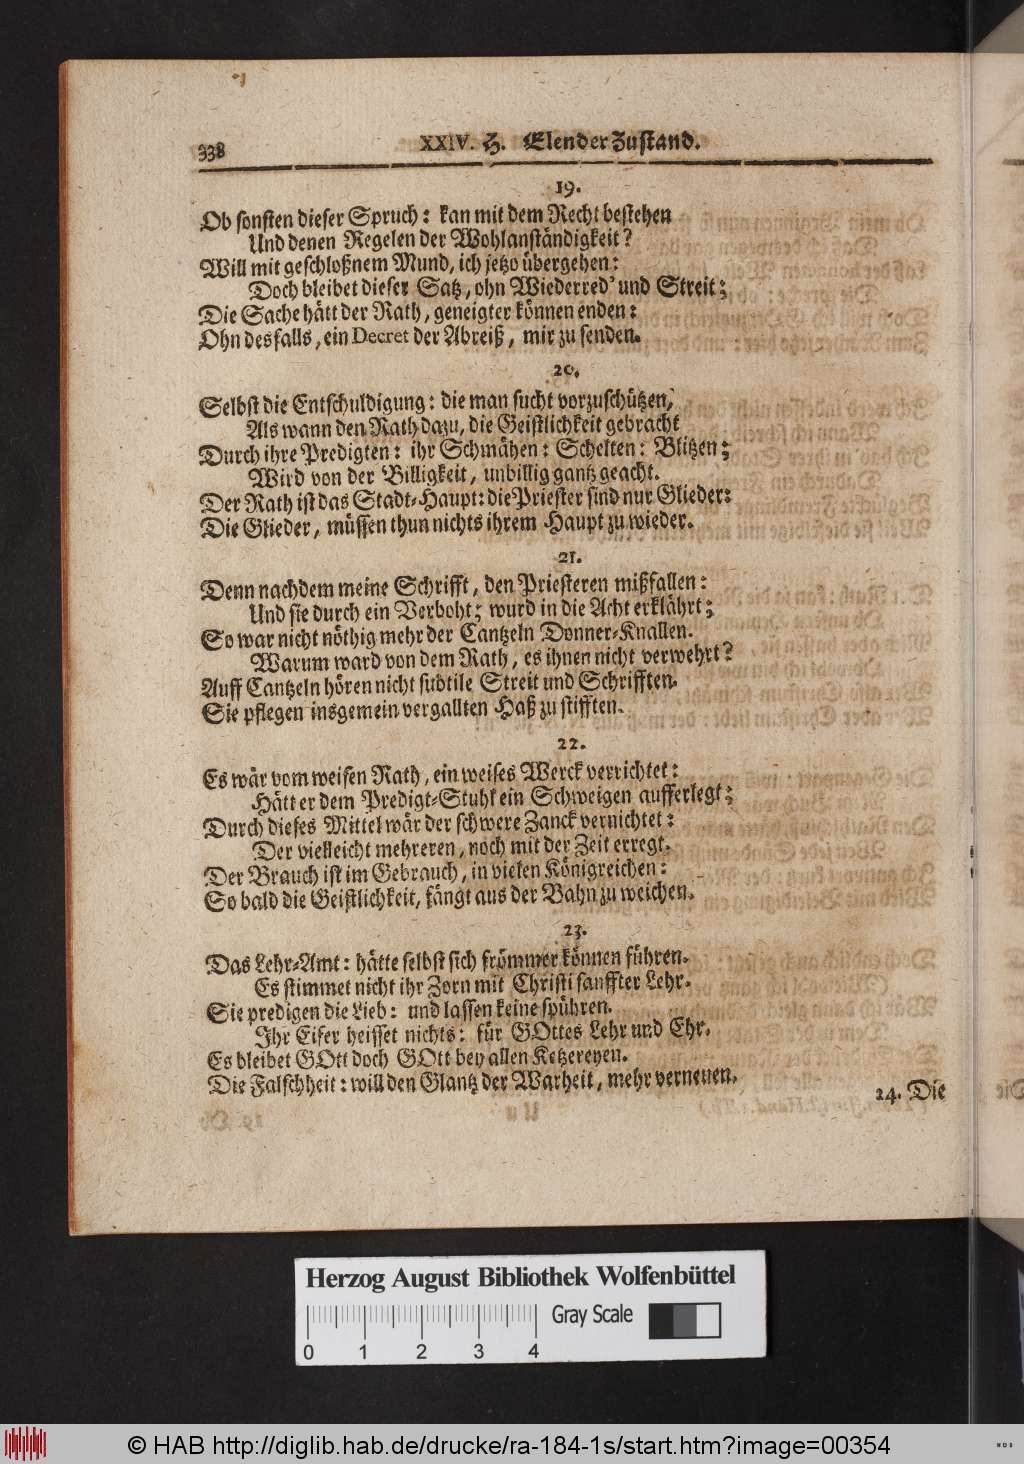 338
XXIV. H. Elender Zustand.
19.
Ob sonsten dieser Spruch: kan mit dem Recht bestehen
Und denen Regelen der Wohlanständigkeit?
Will mit geschloßnem Mund, ich jetzo übergehen:
Doch bleibet dieser Satz, ohn Wiederred' und Streit;
Die Sache hätt der Rath, geneigter können enden:
Ohn desfalls, ein Decret der Abreiß, mir zu senden.
20.
Selbst die Entschuldigung: die man sucht vorzuschützen,
Als wann den Rath dazu, die Geistlichkeit gebracht
Durch ihre Predigten: ihr Schmähen: Schelten: Blitzen;
Wird von der Billigkeit, unbillig gantz geacht.
Der Rath ist das Stadt-Haupt: die Priester sind nur Glieder:
Die Glieder, müssen thun nichts ihrem Haupt zu wieder.
21.
Denn nachdem meine Schrifft, den Priesteren mißfallen:
Und sie durch ein Verboht; wurd in die Acht erklährt;
So war nicht nöthig mehr der Cantzeln Donner-Knallen.
Warum ward von dem Rath, es ihnen nicht verwehrt?
Auff Cantzeln hören nicht subtile Streit und Schrifften.
Sie pflegen insgemein vergallten Haß zu stifften.
22.
Es wär vom weisen Rath, ein weises Werck verrichtet:
Hätt er dem Predigt-Stuhl ein Schweigen aufferlegt;
Durch dieses Mittel wär der schwere Zanck vernichtet:
Der vielleicht mehreren, noch mit der Zeit erregt.
Der Brauch ist im Gebrauch, in vielen Königreichen:
So bald die Geistlichkeit, fängt aus der Bahn zu weichen.
23.
Das Lehr-Amt: hätte selbst sich frömmer können führen.
Es stimmet nicht ihr Zorn mit Christi sanffter Lehr.
Sie predigen die Lieb: und lassen keine spühren.
Ihr Eifer heisset nichts: für GOttes Lehr und Ehr.
Es bleibet GOtt doch GOtt bey allen Ketzereyen.
Die Falschheit: will den Glantz der Warheit, mehr verneuen.
24. Die
Herzog August Bibliothek Wolfenbüttel
Gray Scale
0 1 2 3 4
© HAB http://diglib.hab.de/drucke/ra-184-1s/start.htm?image=00354